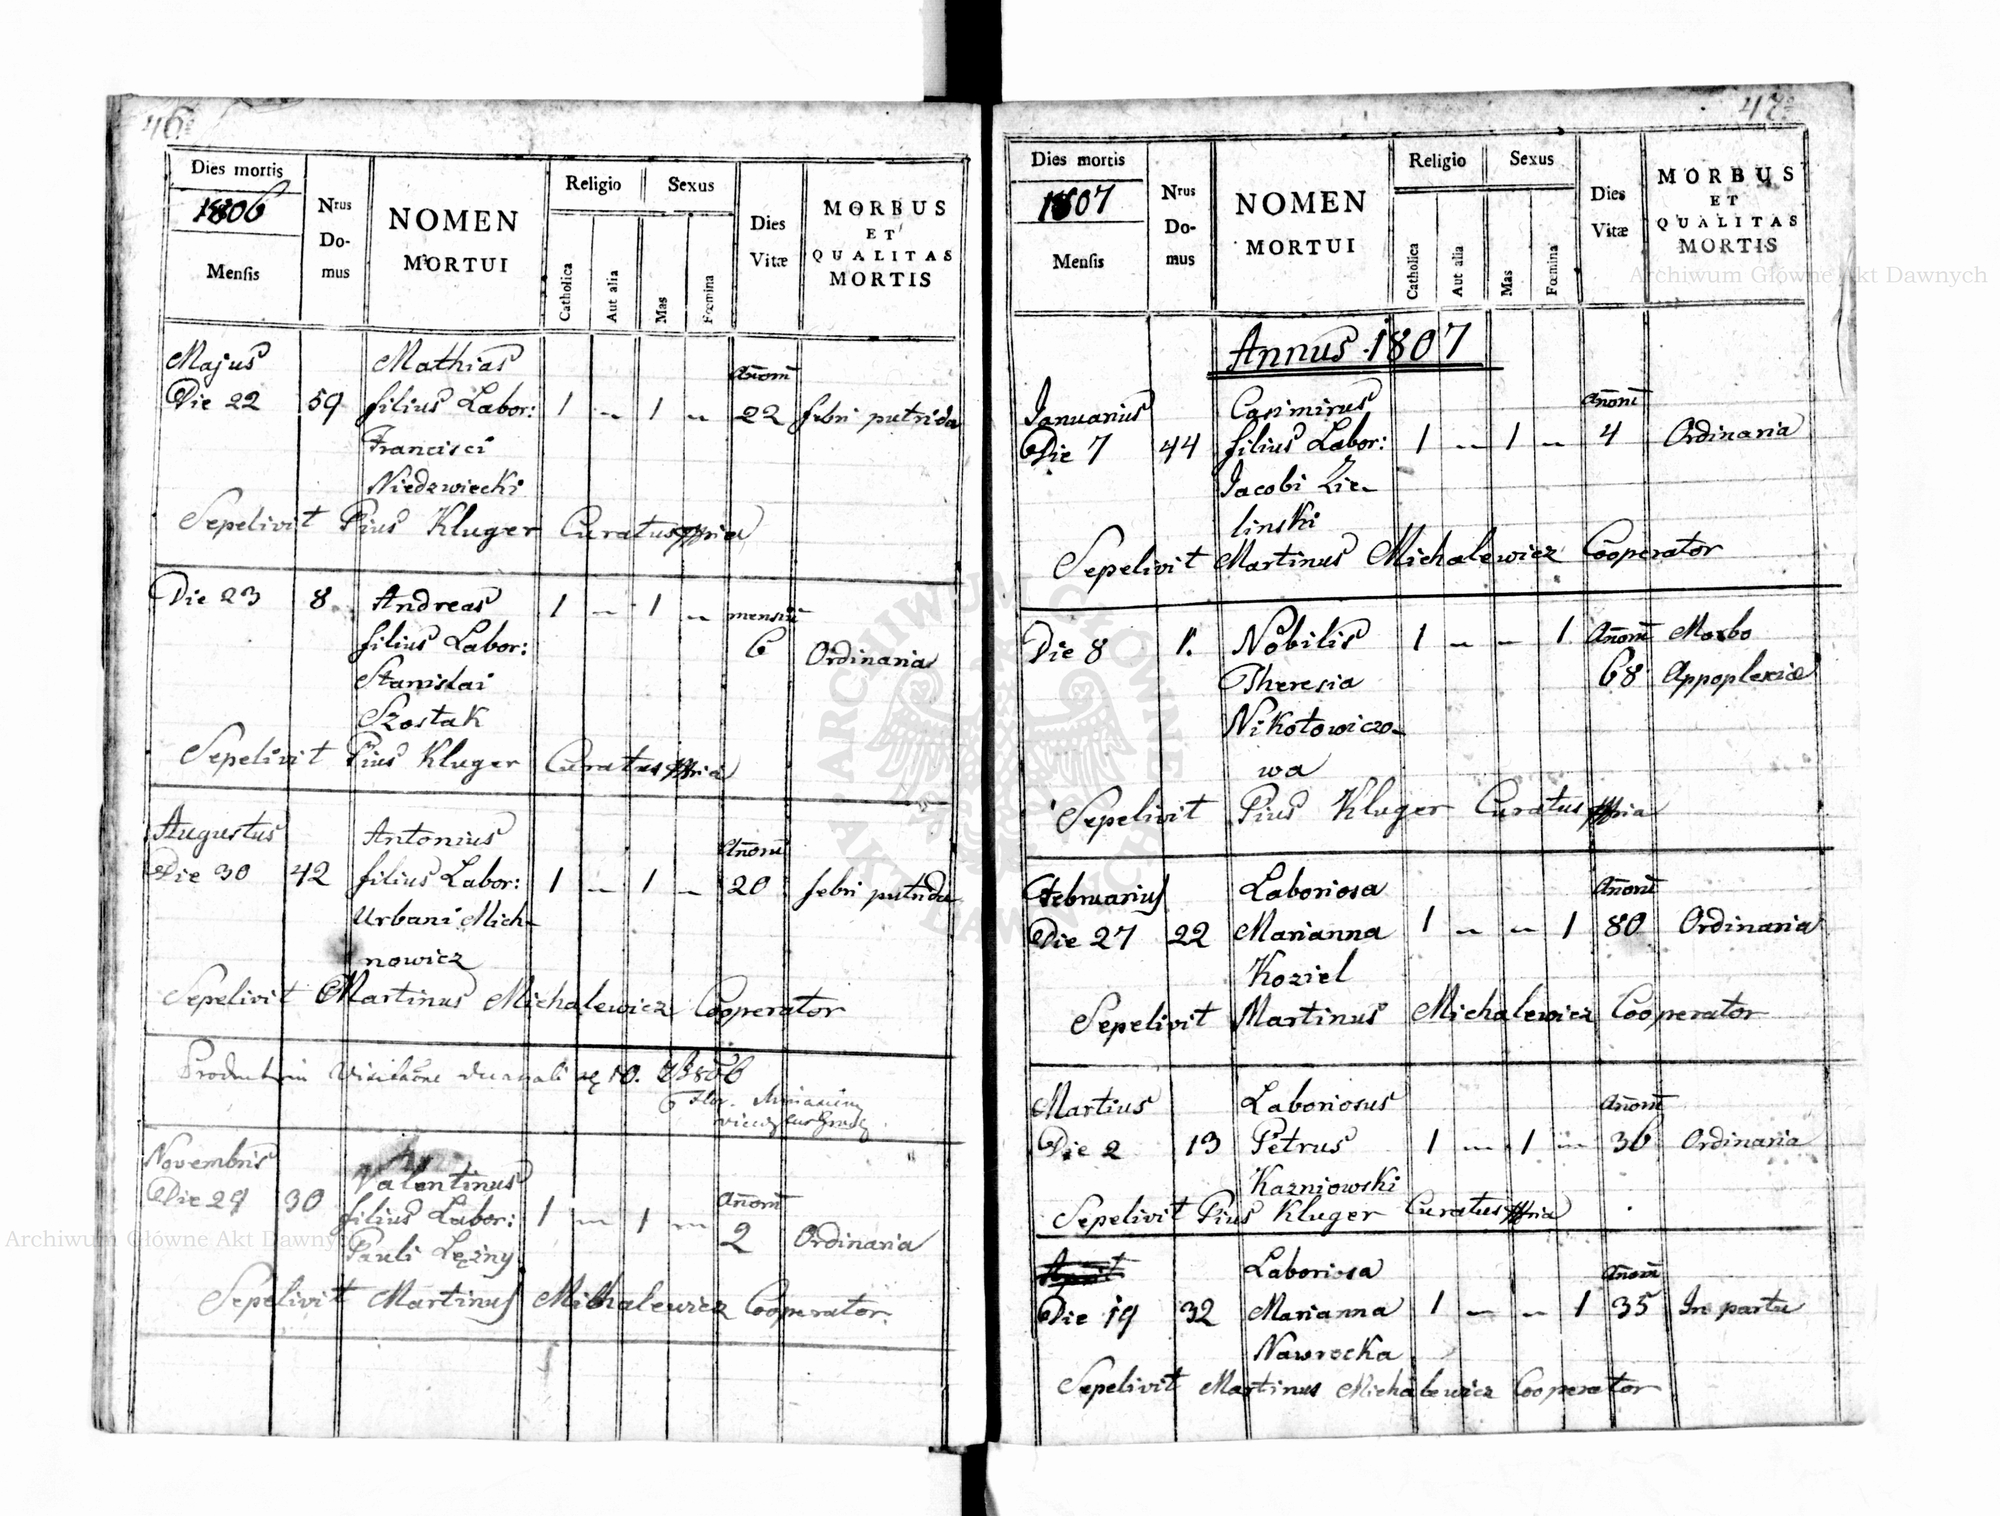 46
Dies mortis
1806
Mensis
Nrus Do-mus
NOMEN
MORTUI
Religio
Catholica
Aut alia
Sexus
Mas
Fœmina
Dies
Vitæ
MORBUS
ET
QUALITAS
MORTIS
Majus Mathias Anom̄
Die 22 59 filius Labor: 1 – 1 – 22 febri putrida
Francisci
Niedzwiecki
Sepelivit Pius Kluger Curatus mpria
Die 23 8. Andreas 1 – 1 – mensiū
filius Labor: 6 Ordinaria
Stanislai
Szostak
Sepelivit Pius Kluger Curatus mpria
Augustus Antonius Anom̄
Die 30 42 filius Labor: 1 – 1 – 20 febri putrida
Urbani Mich-
nowicz
Sepelivit Martinus Michalewicz Cooperator
Productum Visitatione 10. 1806
Novembris Valentinus Anom̄
Die 29 30 filius Labor: 1 – 1 – 2 Ordinaria
Pauli Lęzny
Sepelivit Martinus Michalewicz Cooperator.
47
Dies mortis
1807
Mensis
Nrus Do-mus
NOMEN
MORTUI
Religio
Catholica
Aut alia
Sexus
Mas
Fœmina
Dies
Vitæ
MORBUS
ET
QUALITAS
MORTIS
Annus 1807
Januarius Casimirus Anom̄
Die 7 44 filius Labor: 1 – 1 – 4 Ordinaria
Jacobi Zie-
linski
Sepelivit Martinus Michalewicz Cooperator
Die 8 1. Nobilis 1 – – 1 Anom̄ Morbo
Theresia 68 Appoplexiæ
Nikotowiczo-
wa
Sepelivit Pius Kluger Curatus mpria
Februarius Laboriosa Anom̄
Die 27 22 Marianna 1 – – 1 80 Ordinaria
Koziel
Sepelivit Martinus Michalewicz Cooperator
Martius Laboriosus Anom̄
Die 2 13 Petrus 1 – 1 – 36 Ordinaria
Kazniowski
Sepelivit Pius Kluger Curatus mpria
Laboriosa Anom̄
Die 19 32 Marianna 1 – – 1 35 In partu
Nawrocka
Sepelivit Martinus Michalewicz Cooperator
Archiwum Główne Akt Dawnych
Archiwum Główne Akt Dawnych
ARCHIWUM GŁÓWNE AKT DAWNYCH